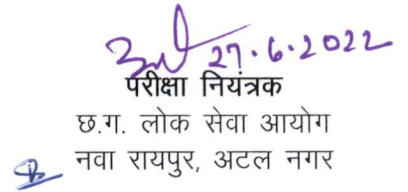 27.6.2022
परीक्षा नियंत्रक
छ.ग. लोक सेवा आयोग
नवा रायपुर, अटल नगर